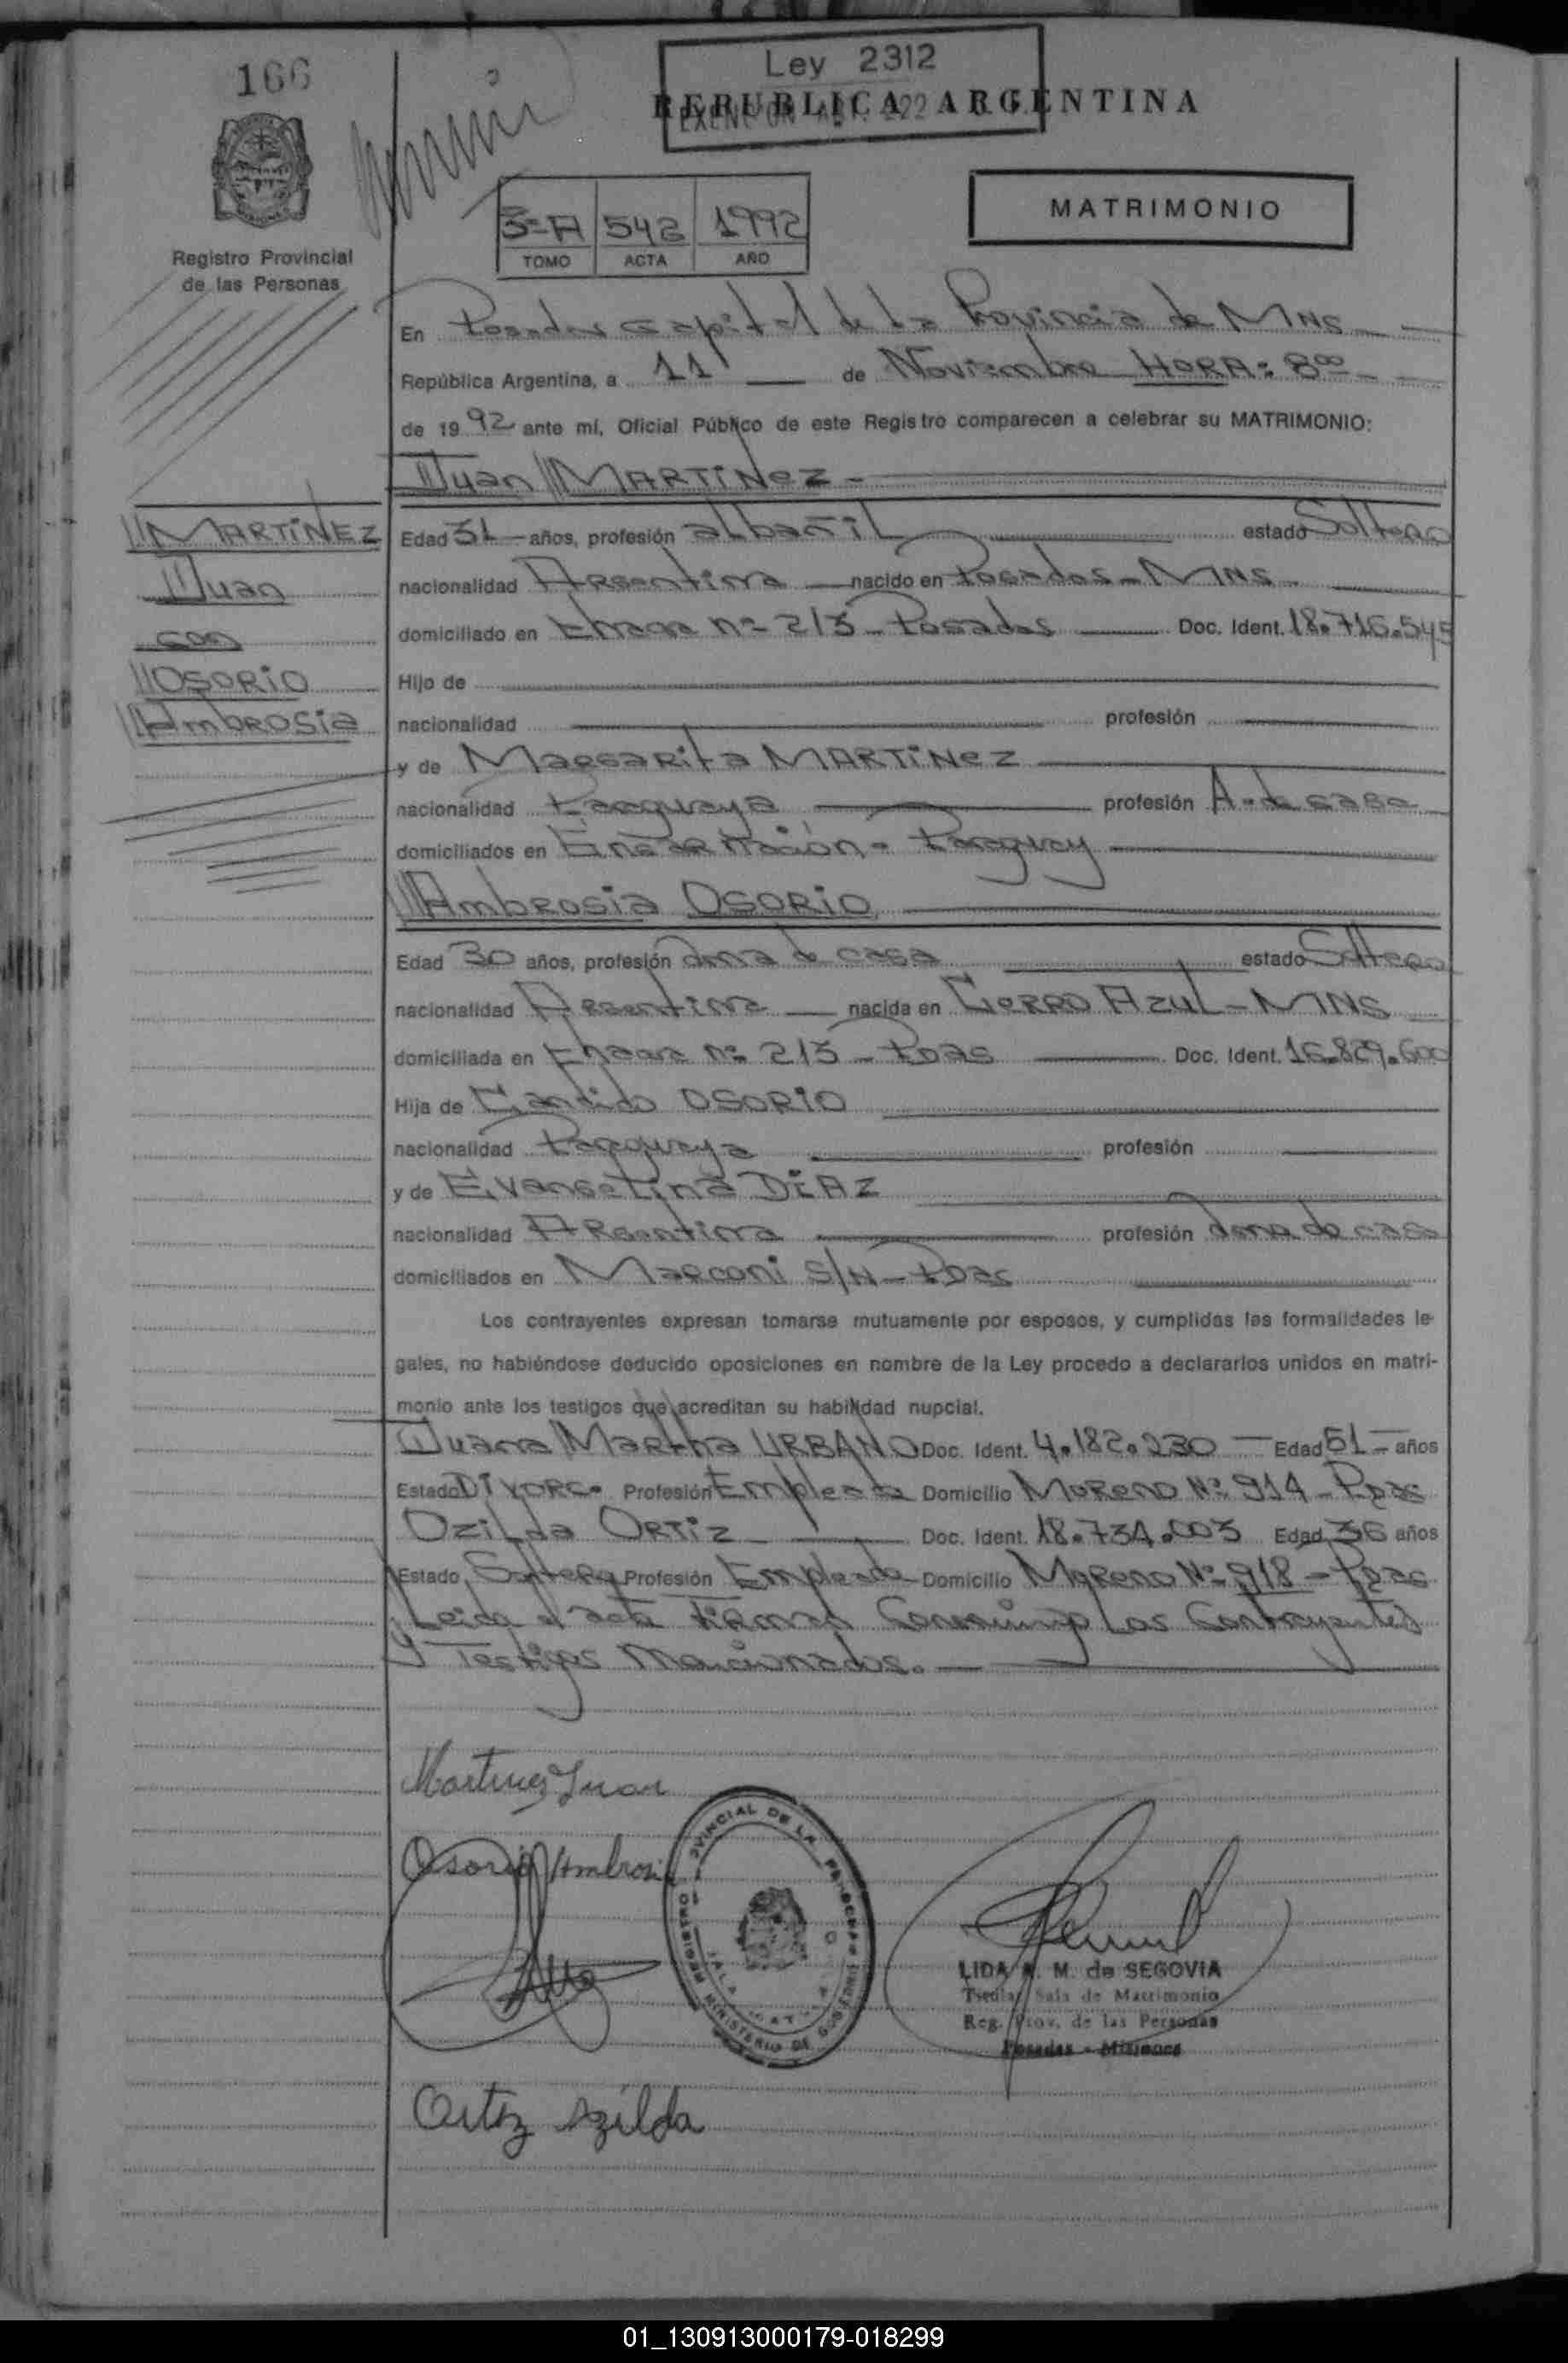 166
Ley 2312
REPUBLICA ARGENTINA
Registro Provincial
de las Personas
3º A 542 1992
TOMO ACTA AÑO
MATRIMONIO
En Posadas Capital de la Provincia de MNS
República Argentina, a 11 de Noviembre HORA: 8ºº
de 1992 ante mí, Oficial Público de este Registro comparecen a celebrar su MATRIMONIO:
Juan MARTINEZ
MARTINEZ
Juan
con
OSORIO
Ambrosia
Edad 31 años, profesión albañil estado Soltero
nacionalidad Argentina nacido en Posadas - MNS
domiciliado en nº 213 - Posadas Doc. Ident. 18.716.545
Hijo de
nacionalidad profesión
y de Margarita MARTINEZ
nacionalidad Paraguaya profesión A. de casa
domiciliados en Encarnación - Paraguay
Ambrosia OSORIO
Edad 30 años, profesión ama de casa estado Soltera
nacionalidad Argentina nacida en Cerro Azul - MNS
domiciliada en nº 213 - Pdas Doc. Ident. 16.829.600
Hija de Candido OSORIO
nacionalidad Paraguaya profesión
y de Evangelina DIAZ
nacionalidad Argentina profesión ama de casa
domiciliados en Marconi S/N - Pdas
Los contrayentes expresan tomarse mutuamente por esposos, y cumplidas las formalidades le-
gales, no habiéndose deducido oposiciones en nombre de la Ley procedo a declararlos unidos en matri-
monio ante los testigos que acreditan su habilidad nupcial.
Juana Martha URBANO Doc. Ident. 4.182.230 Edad 51 años
Estado Divorc. Profesión Empleada Domicilio Moreno Nº 914 - Pdas
Ozilda ORTIZ Doc. Ident. 18.734.003 Edad 36 años
Estado Soltera Profesión Empleada Domicilio Moreno Nº 918 - Pdas
Leida el acta firman conmigo los Contrayentes
y Testigos mencionados.
Martinez Juan
Osorio Ambrosia
LIDA M. de SEGOVIA
Titular Sala de Matrimonio
Reg. Prov. de las Personas
Posadas - Misiones
Ortiz Azilda
01_130913000179-018299